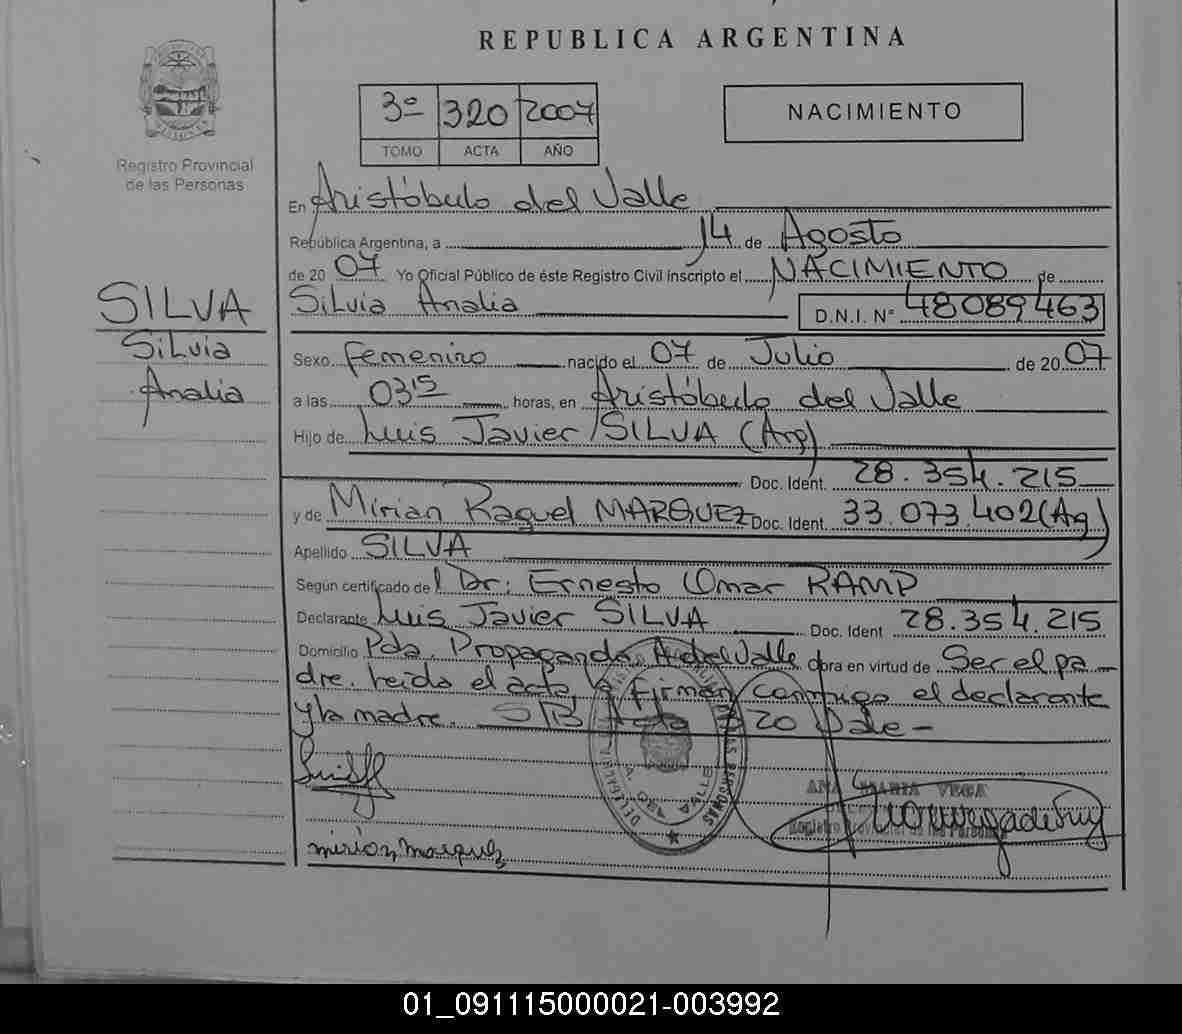 REPUBLICA ARGENTINA
3º 320 2007
TOMO ACTA AÑO
NACIMIENTO
Registro Provincial
de las Personas
En Aristóbulo del Valle
República Argentina, a 14 de Agosto
de 20 07 Yo Oficial Público de éste Registro Civil inscripto el NACIMIENTO de
Silvia Analia D.N.I. Nº 48089463
SILVA
Silvia
Analia
Sexo femenino nacido el 07 de Julio de 20 07
a las 03 15 horas, en Aristóbulo del Valle
Hijo de Luis Javier SILVA (Arg)
Doc. Ident. 28.354.215
y de Mirian Raquel MARQUEZ Doc. Ident. 33.073.402 (Arg)
Apellido SILVA
Según certificado del Dr: Ernesto Omar RAMP
Declarante Luis Javier SILVA Doc. Ident 28.354.215
Domicilio Pda. Propaganda, A. del Valle Obra en virtud de Ser el pa
dre. Leída el acta, firman conmigo el declarante
y la madre. S/B Acta 320 Vale-
ANA MARIA VEGA
Registro Provincial de las Personas
mirian marquez
01_091115000021-003992